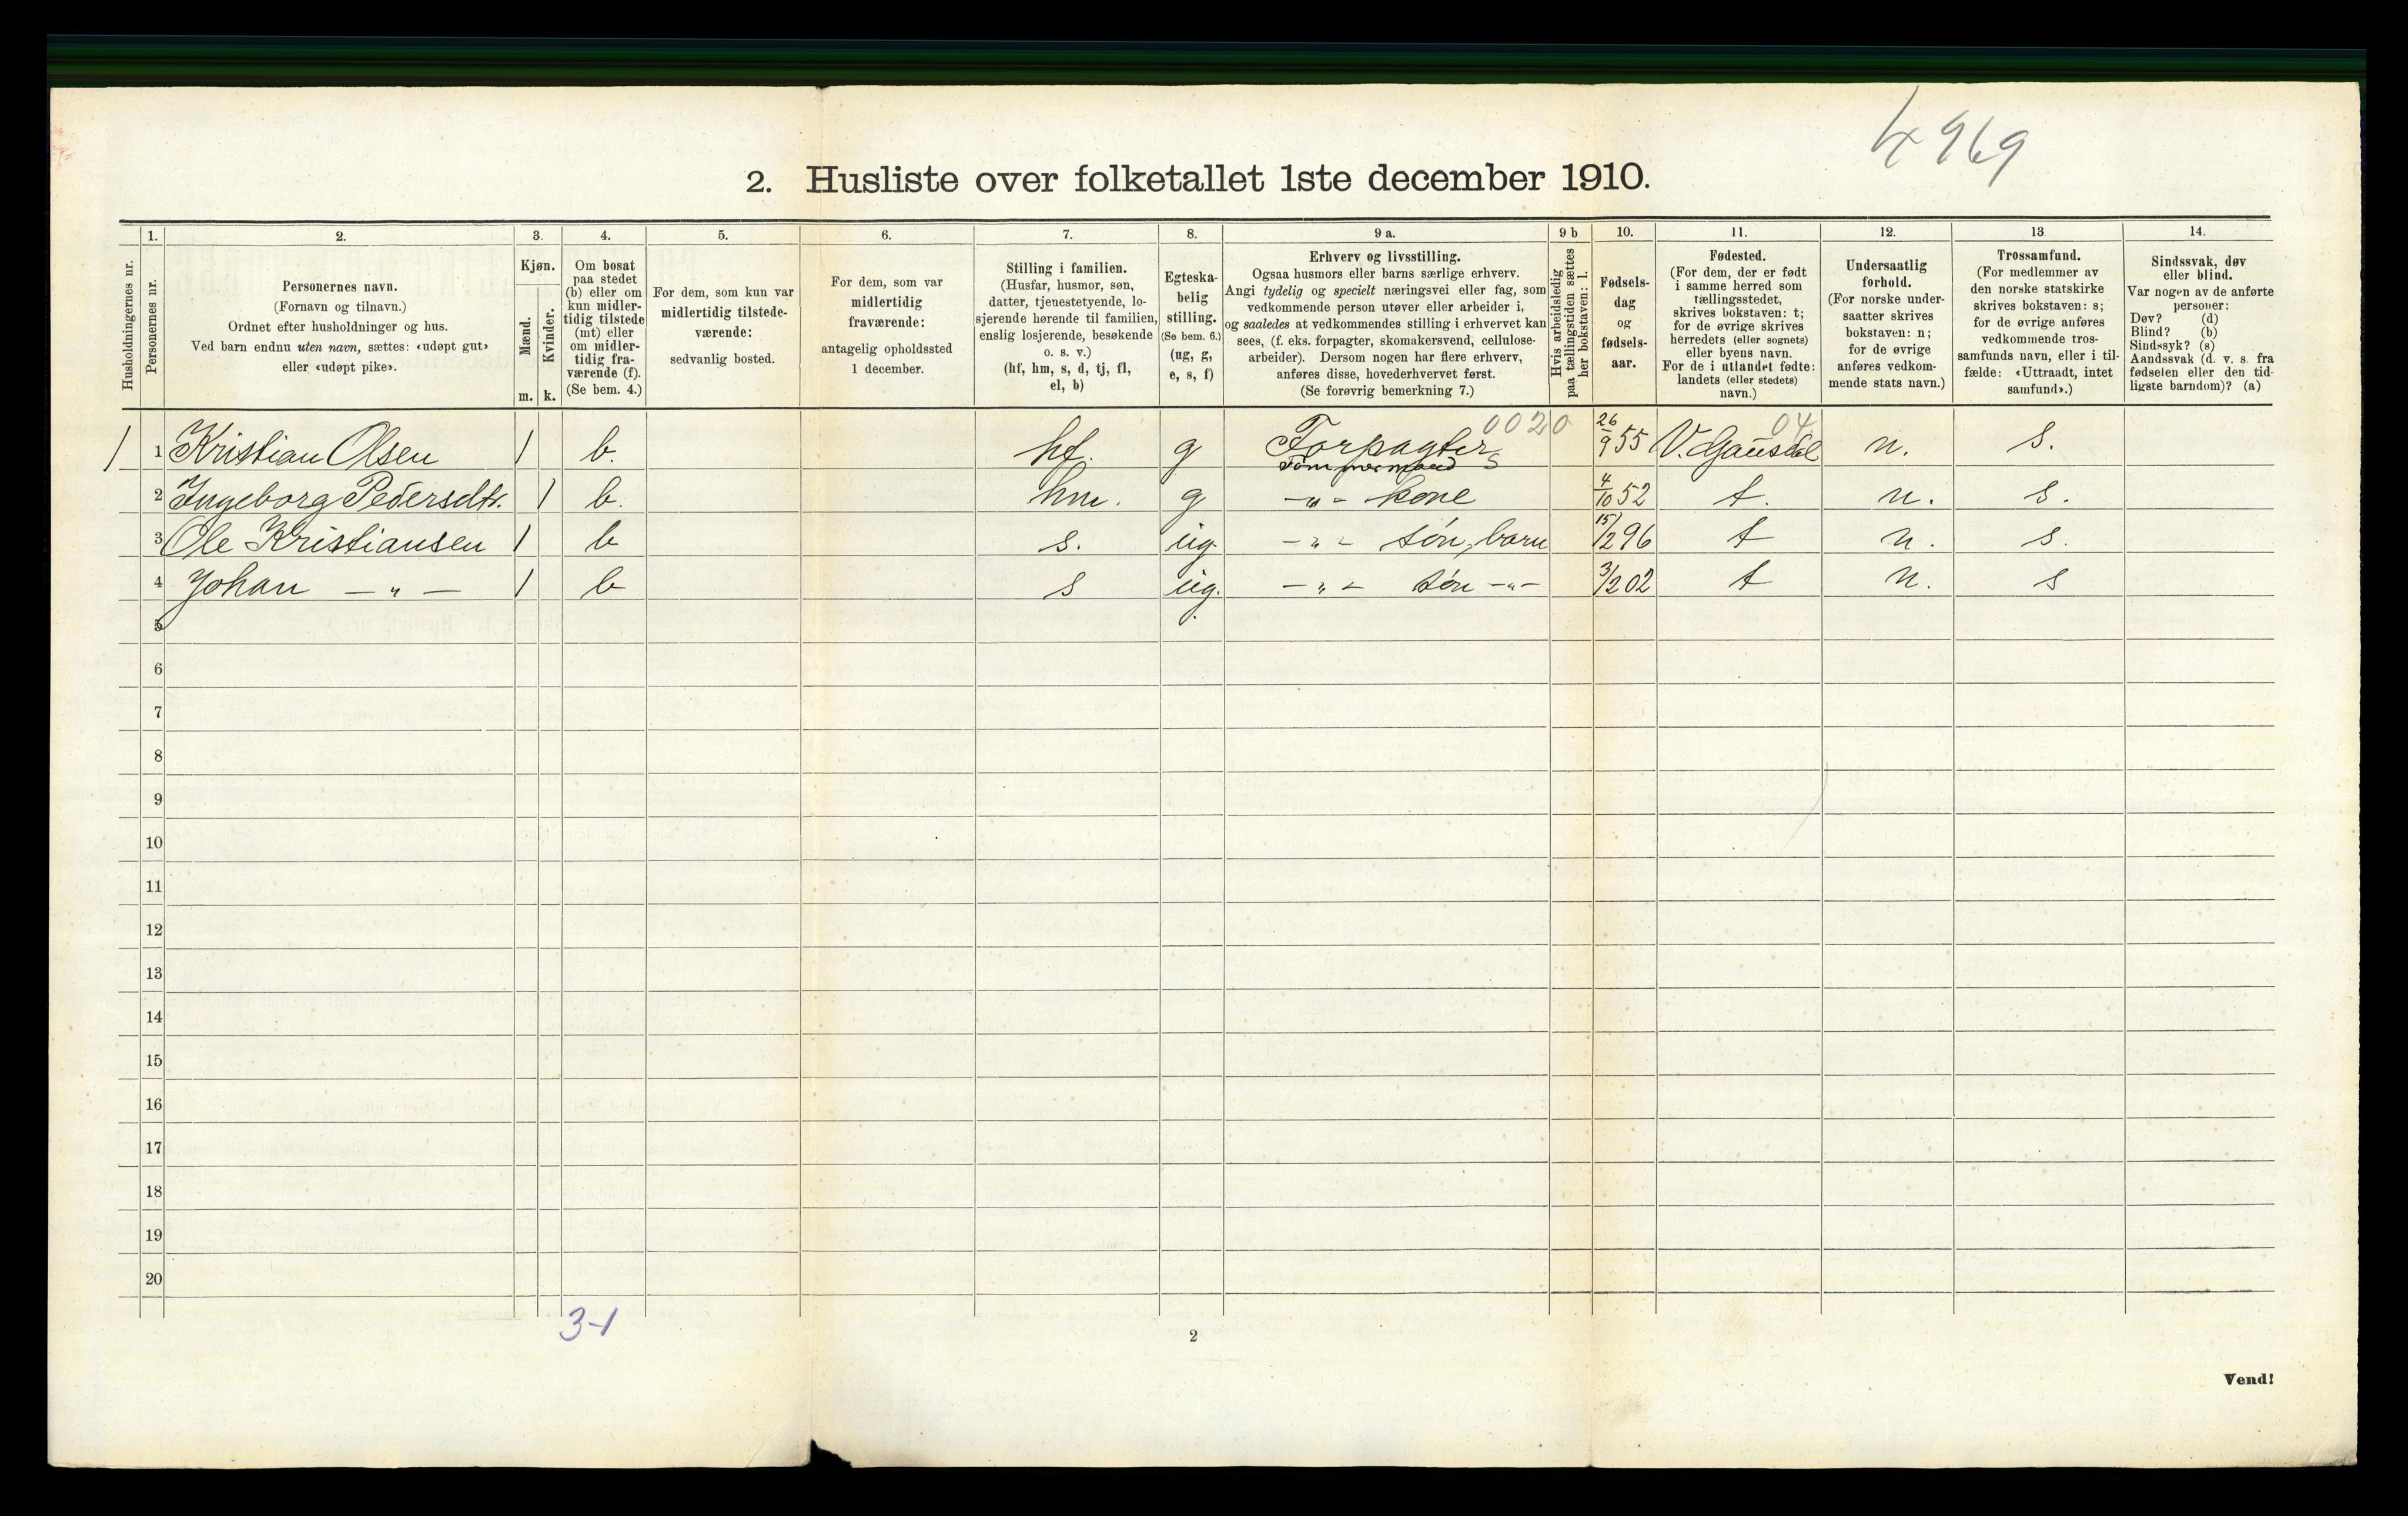 4969
2. Husliste over folketallet 1ste december 1910.
Husholdningernes nr.
1.
Personernes nr.
2.
Personernes navn.
(Fornavn og tilnavn.)
Ordnet efter husholdninger og hus.
Ved barn endnu uten navn, sættes: «udøpt gut»
eller «udøpt pike».
3.
Kjøn.
Mænd.
Kvinder.
m. k.
4.
Om bosat
paa stedet
(b) eller om
kun midler-
tidig tilstede
(mt) eller
om midler-
tidig fra-
værende (f).
(Se bem. 4.)
5.
For dem, som kun var
midlertidig tilstede-
værende:
sedvanlig bosted.
6.
For dem, som var
midlertidig
fraværende:
antagelig opholdssted
1 december.
7.
Stilling i familien.
(Husfar, husmor, søn,
datter, tjenestetyende, lo-
sjerende hørende til familien,
enslig losjerende, besøkende
o. s. v.)
(hf, hm, s, d, tj, fl,
el, b)
8.
Egteska-
belig
stilling.
(Se bem. 6.)
(ug, g,
e, s, f)
9 a.
Erhverv og livsstilling.
Ogsaa husmors eller barns særlige erhverv.
Angi tydelig og specielt næringsvei eller fag, som
vedkommende person utøver eller arbeider i,
og saaledes at vedkommendes stilling i erhvervet kan
sees, (f. eks. forpagter, skomakersvend, cellulose-
arbeider). Dersom nogen har flere erhverv,
anføres disse, hovederhvervet først.
(Se forøvrig bemerkning 7.)
9 b
Hvis arbeidsledig
paa tællingstiden sættes
her bokstaven: l.
10.
Fødsels-
dag
og
fødsels-
aar.
11.
Fødested.
(For dem, der er født
i samme herred som
tællingsstedet,
skrives bokstaven: t;
for de øvrige skrives
herredets (eller sognets)
eller byens navn.
For de i utlandet fødte:
landets (eller stedets)
navn.)
12.
Undersaatlig
forhold.
(For norske under-
saatter skrives
bokstaven: n;
for de øvrige
anføres vedkom-
mende stats navn.)
13
Trossamfund.
(For medlemmer av
den norske statskirke
skrives bokstaven: s;
for de øvrige anføres
vedkommende tros-
samfunds navn, eller i til-
fælde: «Uttraadt, intet
samfund».)
14.
Sindssvak, døv
eller blind.
Var nogen av de anførte
personer:
Døv? (d)
Blind? (b)
Sindssyk? (s)
Aandssvak (d. v. s. fra
fødselen eller den tid-
ligste barndom)? (a)
0020 04
1 1 Kristian Olsen 1 b. hf. g Forpagter 26/9 55 V. Gausdal n. s.
Tømmermand s
2 Ingeborg Pedersdtr. 1 b. hm. g -"- kone 4/10 52 t. n. s.
3 Ole Kristiansen 1 b s. ug. -"- søn, barn 15/2 96 t n. s.
4 Johan -"- 1 b s ug. -"- søn -"- 3/2 02 t n. s
5
6
7
8
9
10
11
12
13
14
15
16
17
18
19
20
3-1
2
Vend!